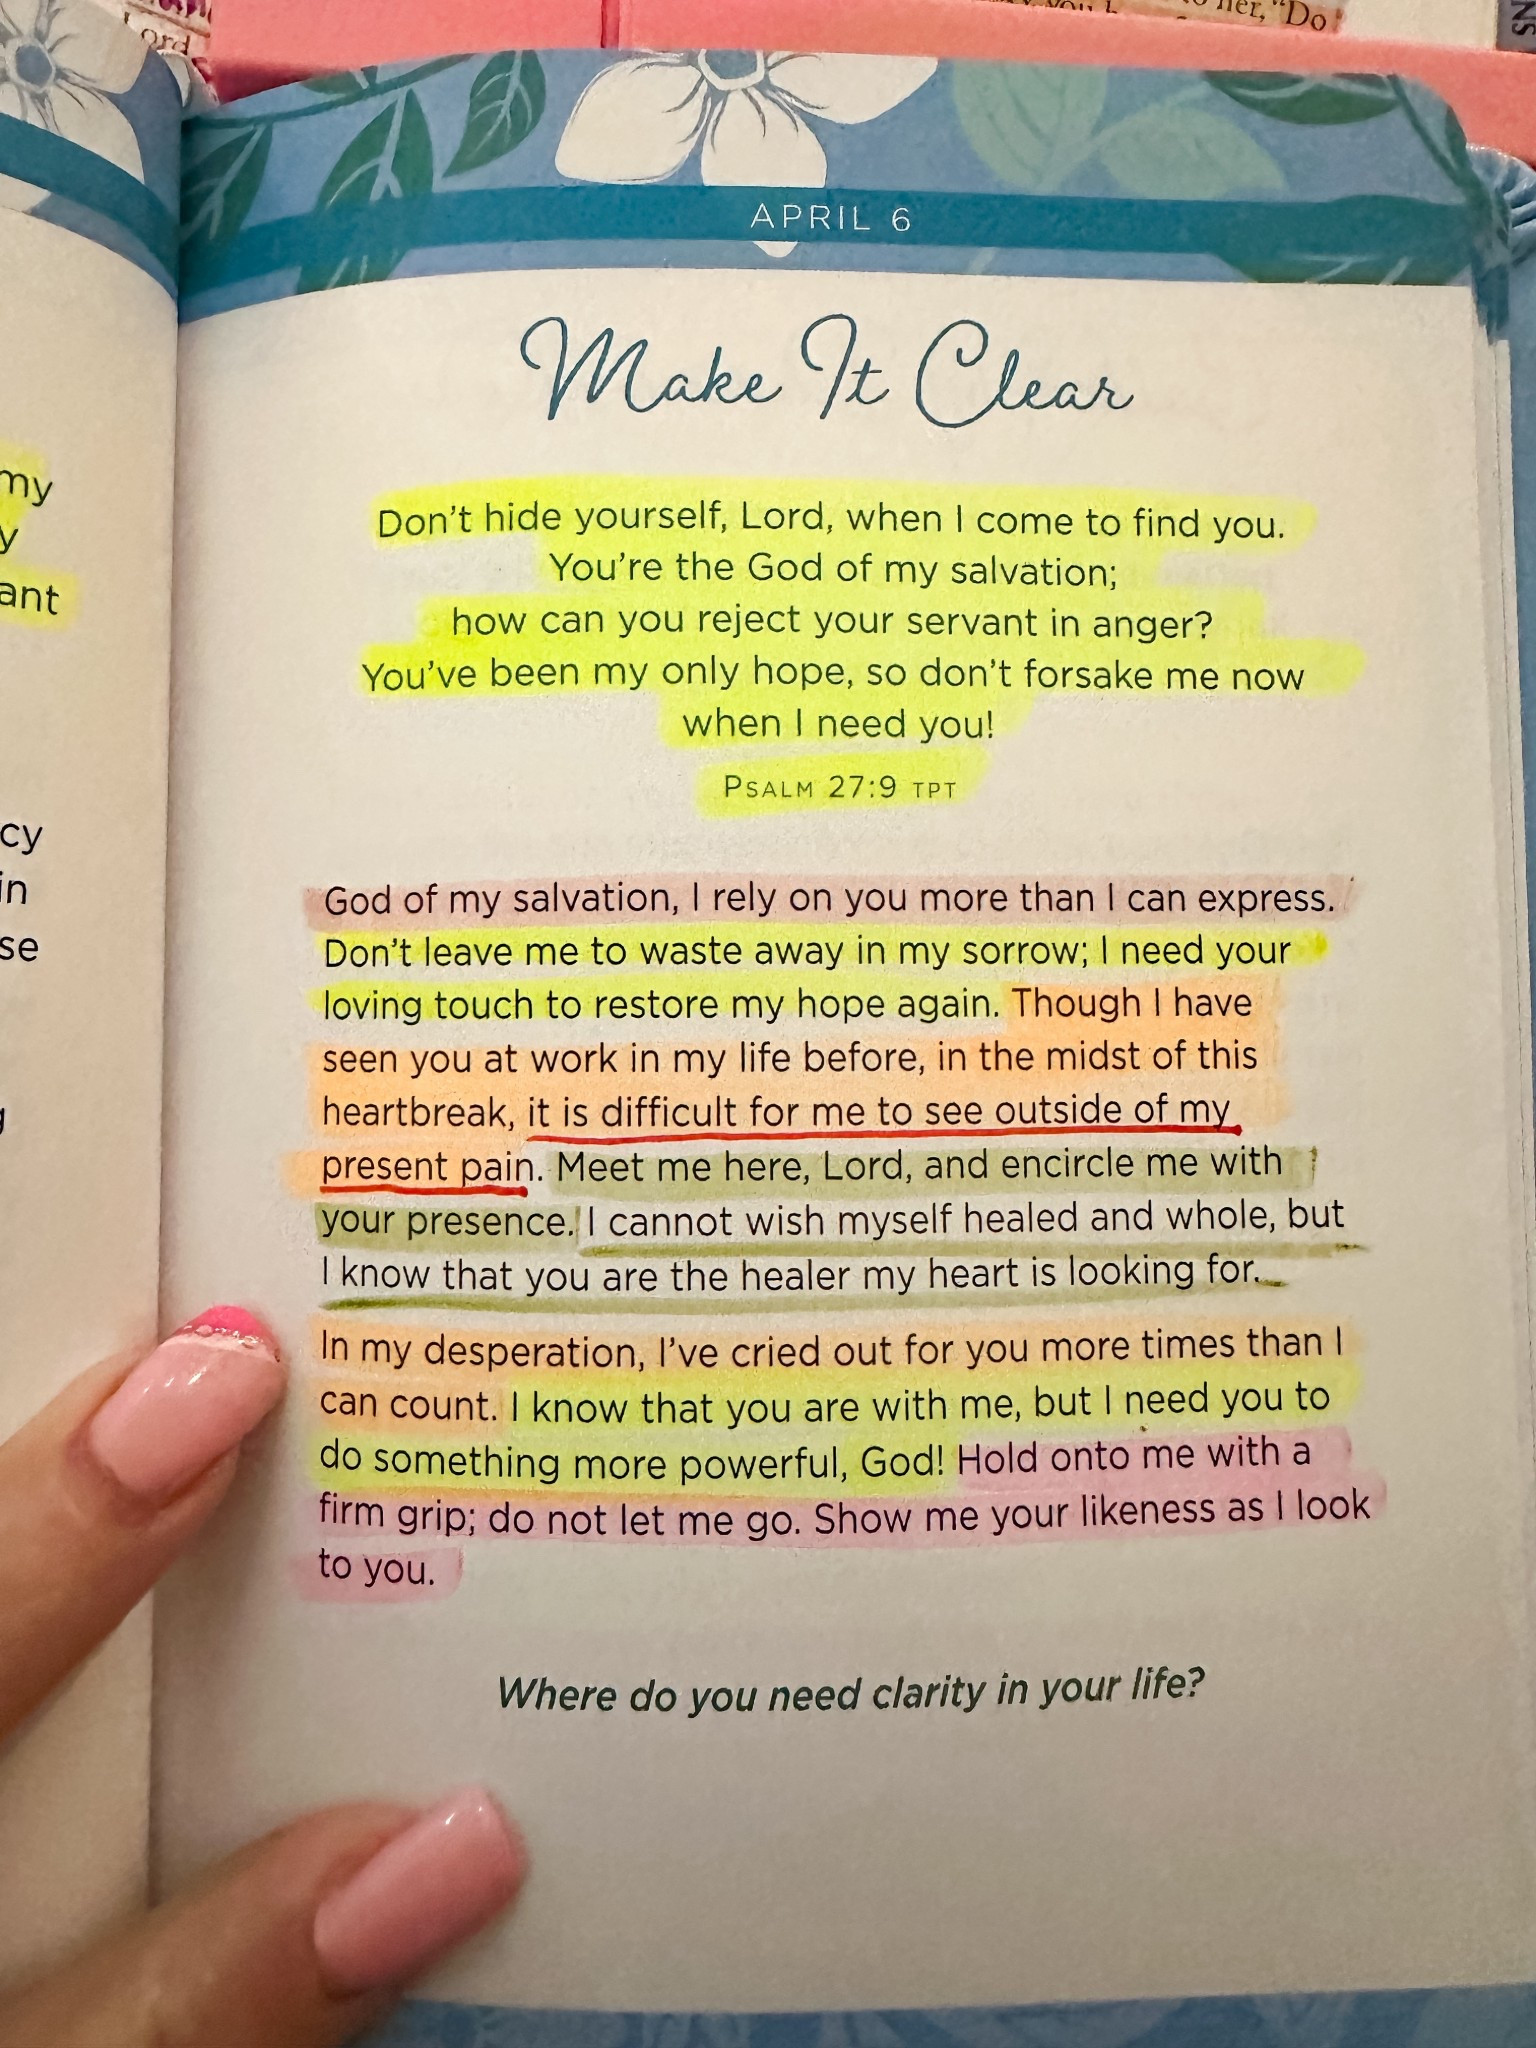 Lord
to her, "Do
NS
APRIL 6
Make It Clear
Don't hide yourself, Lord, when I come to find you.
You're the God of my salvation;
how can you reject your servant in anger?
You've been my only hope, so don't forsake me now
when I need you!
PSALM 27:9 TPT
God of my salvation, I rely on you more than I can express.
Don't leave me to waste away in my sorrow; I need your
loving touch to restore my hope again. Though I have
seen you at work in my life before, in the midst of this
heartbreak, it is difficult for me to see outside of my
present pain. Meet me here, Lord, and encircle me with
your presence. I cannot wish myself healed and whole, but
I know that you are the healer my heart is looking for.
In my desperation, I've cried out for you more times than I
can count. I know that you are with me, but I need you to
do something more powerful, God! Hold onto me with a
firm grip; do not let me go. Show me your likeness as I look
to you.
Where do you need clarity in your life?
my
y
ant
cy
in
se
g